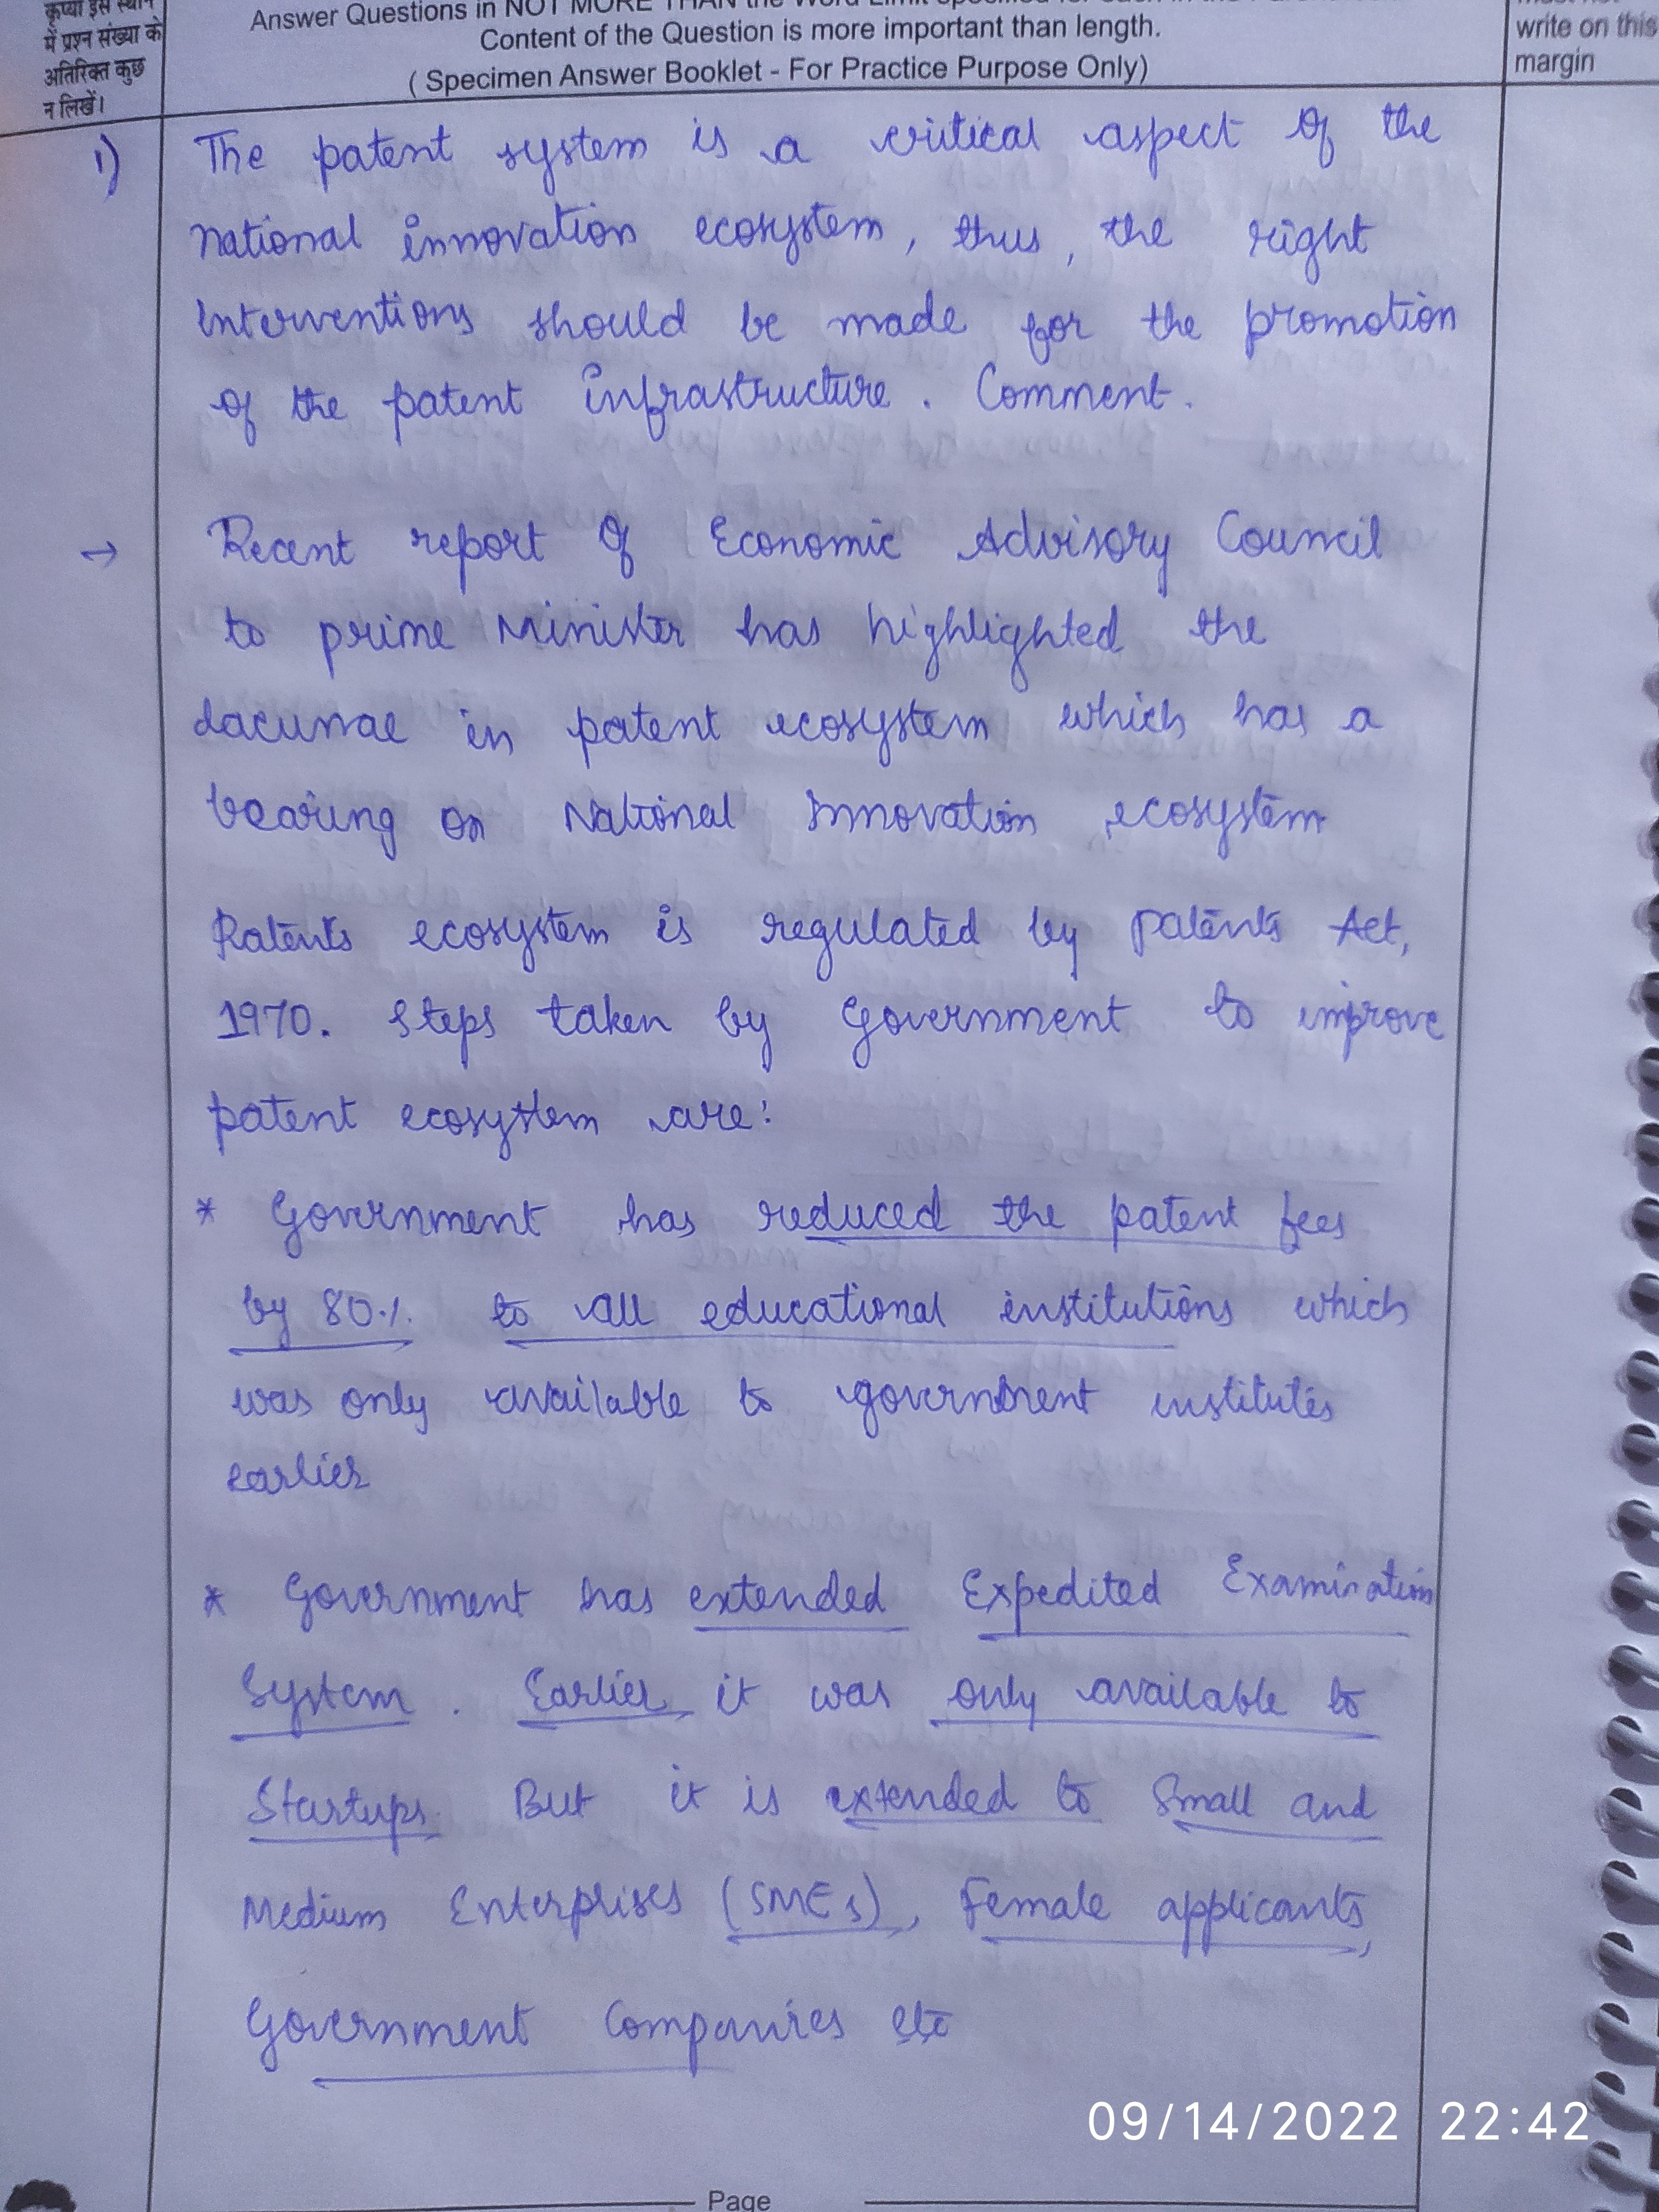 कृप्या इस स्थान
में प्रश्न संख्या के
अतिरिक्त कुछ
न लिखें।
Answer Questions in NOT MORE THAN the Word Limit specified for each in the
Content of the Question is more important than length.
( Specimen Answer Booklet - For Practice Purpose Only)
write on this
margin
1) The patent system is a critical aspect of the
national innovation ecosystem, thus, the right
interventions should be made for the promotion
of the patent infrastructure. Comment.
→ Recent report of Economic Advisory Council
to prime Minister has highlighted the
lacunae in patent ecosystem which has a
bearing on National Innovation ecosystem
Patents ecosystem is regulated by Patents Act,
1970. Steps taken by Government to improve
patent ecosystem are:
* Government has reduced the patent fees
by 80% to all educational institutions which
was only available to government institutes
earlier
* Government has extended Expedited Examination
System. Earlier, it was only available to
Startups. But it is extended to Small and
Medium Enterprises (SMEs), Female applicants,
Government Companies etc
09/14/2022 22:42
Page